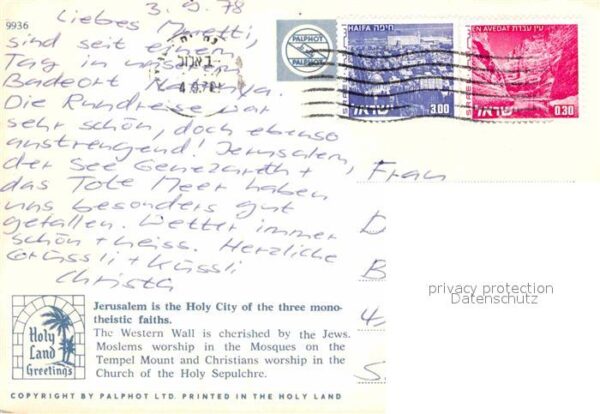 9936
3.9.78
Liebes Muetti,
sind seit einem
Tag in unserem
Badeort Natanya.
Die Rundreise war
sehr schön, doch ebenso
anstrengend! Jerusalem,
der See Genezareth +
das Tote Meer haben
uns besonders gut
gefallen. Wetter immer
schön + heiss. Herzliche
Grüssli + Küssli
Christa
PALPHOT
HAIFA חיפה
ישראל
3.00
EN AVEDAT עין עבדת
ישראל
0.30
Frau
D
B
4
S
privacy protection
Datenschutz
Holy
Land
Greetings
Jerusalem is the Holy City of the three mono-
theistic faiths.
The Western Wall is cherished by the Jews.
Moslems worship in the Mosques on the
Tempel Mount and Christians worship in the
Church of the Holy Sepulchre.
COPYRIGHT BY PALPHOT LTD. PRINTED IN THE HOLY LAND